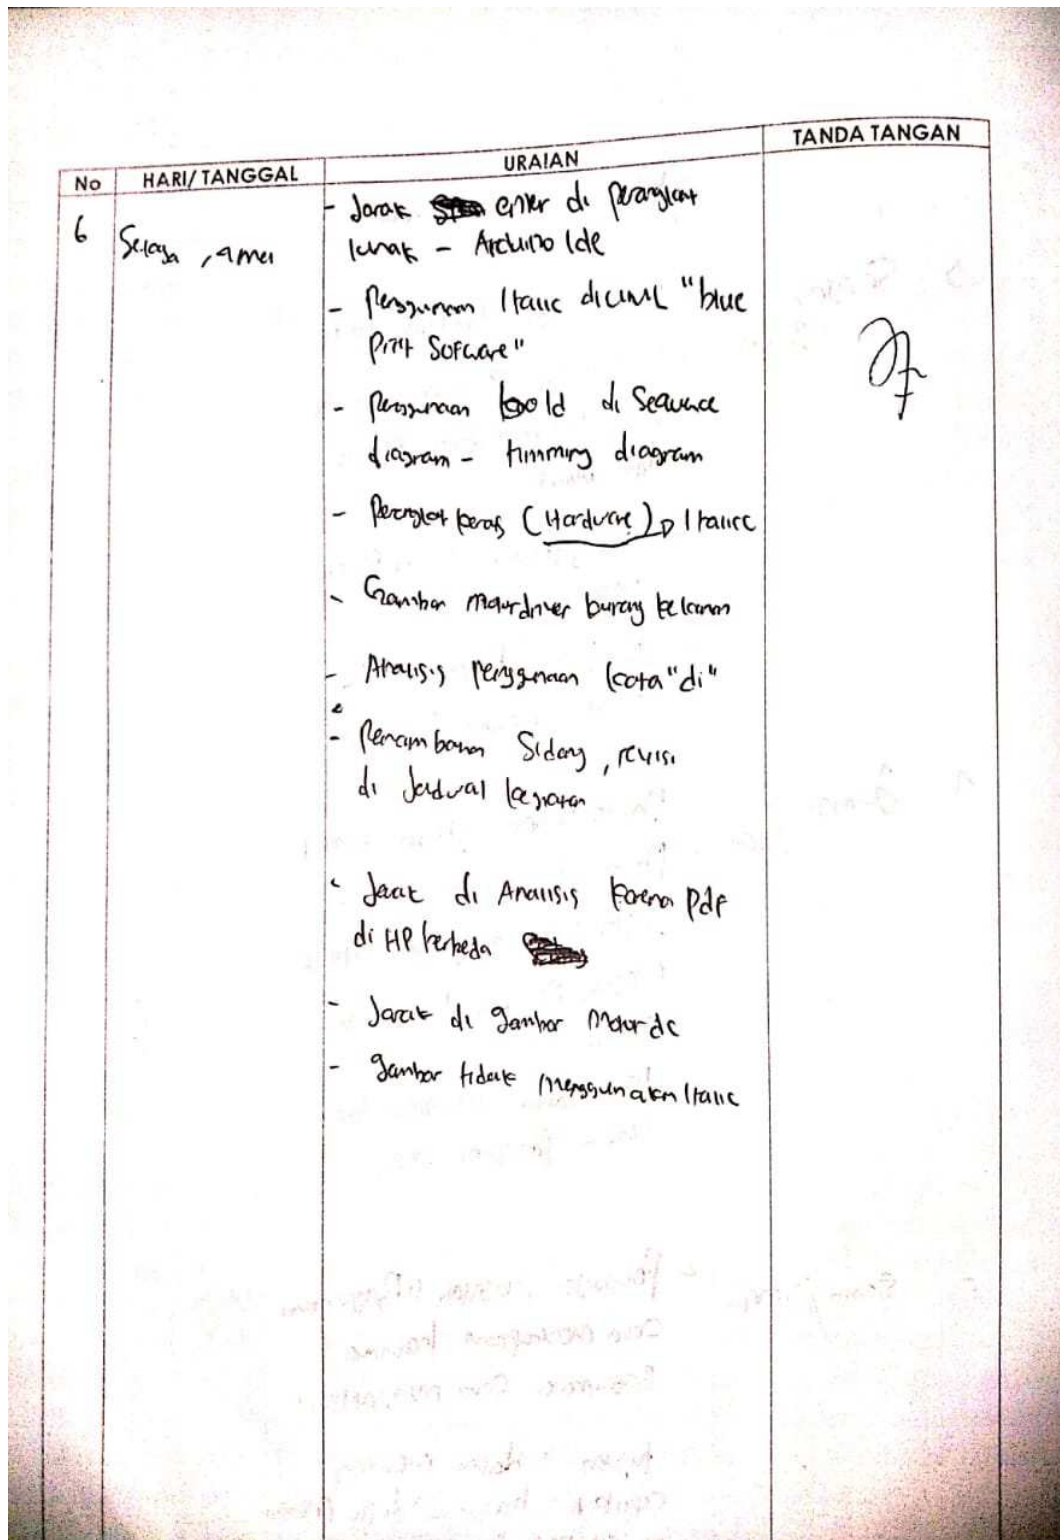 No HARI/TANGGAL URAIAN TANDA TANGAN
6 Selasa, 4 mei
- Jarak enter di perangkat
lunak - Arduino Ide
- Penggunaan Italic di UML "blue
Print Sofware"
- Penggunaan bold di Sequence
diagram - timming diagram
- Perangkat keras (Hardware) Italic
- Gambar motor driver burang
- Analisis penggunaan kata "di"
- Penambahan Sidang, revisi
di Jadwal kegiatan
- Jarak di Analisis karena Pdf
di HP berbeda
- Jarak di gambar Motor dc
- gambar tidak menggunakan Italic